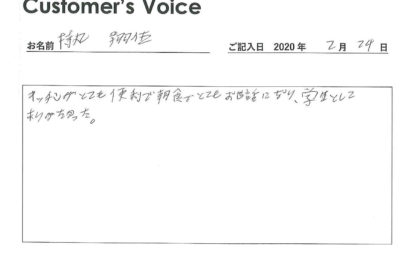 Customer's Voice
お名前
ご記入日 2020 年 2 月 29 日
キッチンがとても便利で朝食でとてもお世話になり、学生として
ありがたかった。